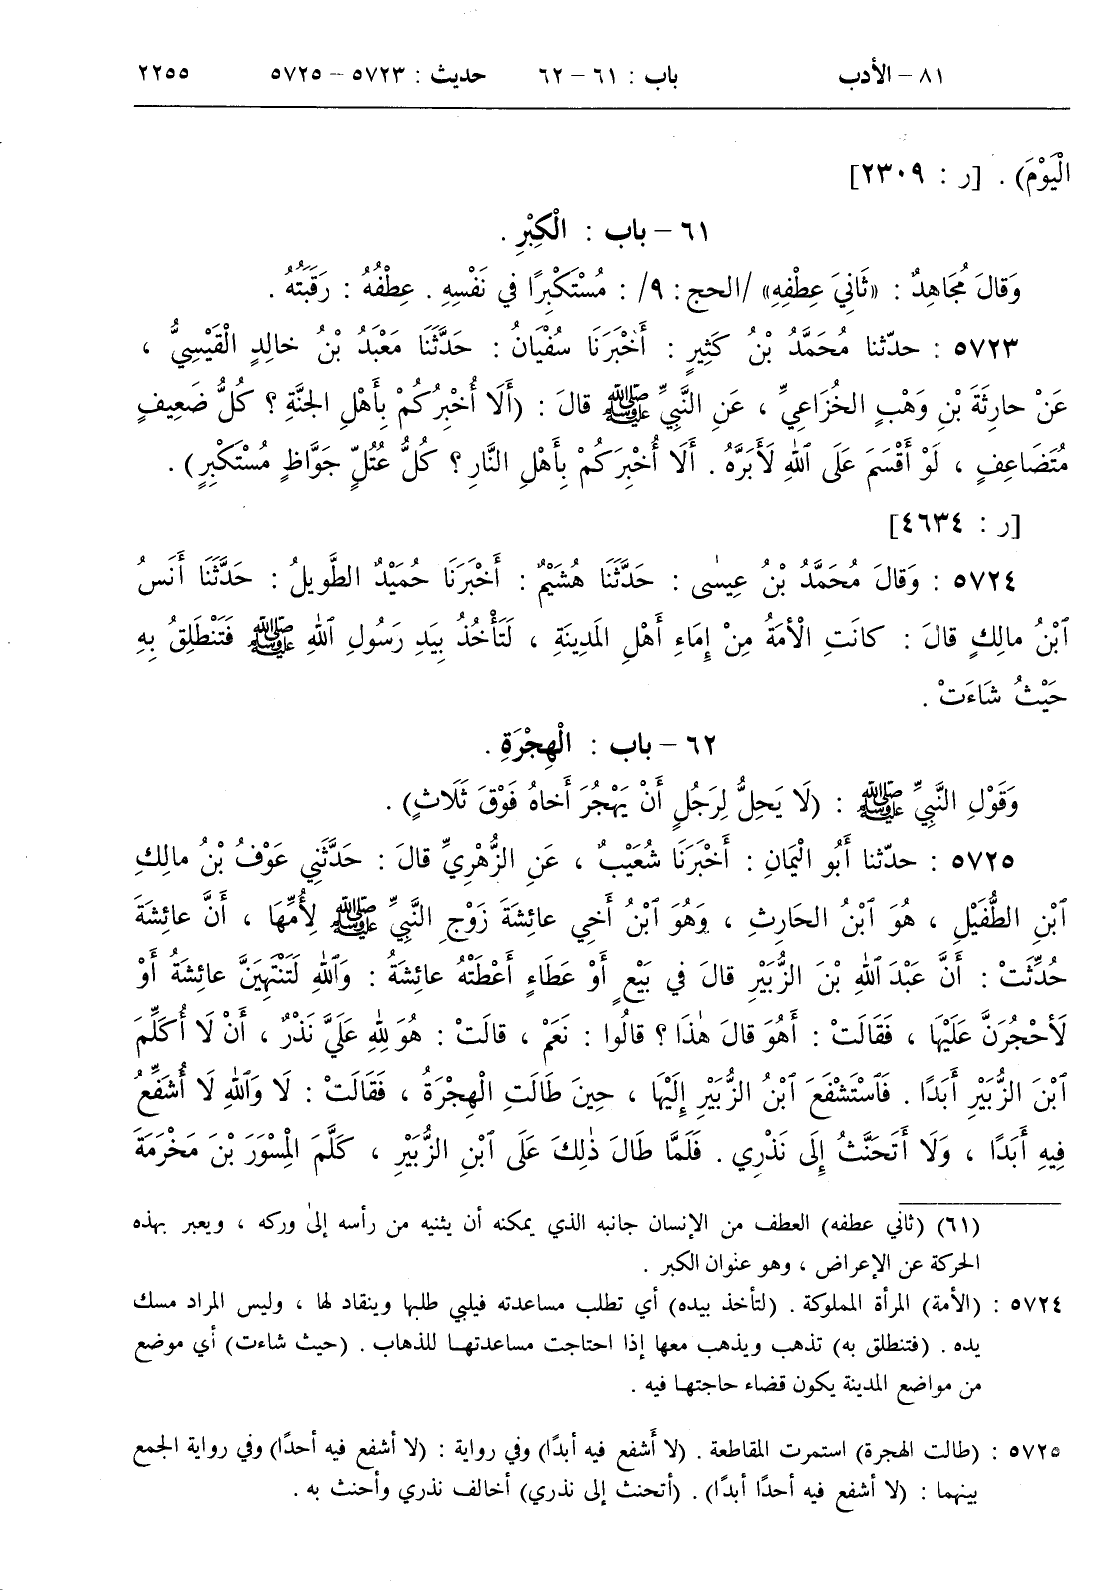 ٨١ – الأدب باب : ٦١ – ٦٢ حديث : ٥٧٢٣ – ٥٧٢٥ ٢٢٥٥
الْيَوْمَ) . [ر : ٢٣٠٩]
٦١ – باب : الْكِبْرِ .
وَقالَ مُجَاهِدٌ : «ثَانِيَ عِطْفِهِ» /الحج : ٩/ : مُسْتَكْبِرًا في نَفْسِهِ . عِطْفُهُ : رَقَبَتُهُ .
٥٧٢٣ : حدّثنا مُحَمَّدُ بْنُ كَثِيرٍ : أَخْبَرَنَا سُفْيَانُ : حَدَّثَنَا مَعْبَدُ بْنُ خالِدٍ الْقَيْسِيُّ ،
عَنْ حارِثَةَ بْنِ وَهْبٍ الخُزَاعِيِّ ، عَنِ النَّبِيِّ ﷺ قالَ : (أَلَا أُخْبِرُكُمْ بِأَهْلِ الجَنَّةِ ؟ كُلُّ ضَعِيفٍ
مُتَضَاعِفٍ ، لَوْ أَقْسَمَ عَلَى ٱللهِ لَأَبَرَّهُ . أَلَا أُخْبِرَكُمْ بِأَهْلِ النَّارِ ؟ كُلُّ عُتُلٍّ جَوَّاظٍ مُسْتَكْبِرٍ) .
[ر : ٤٦٣٤]
٥٧٢٤ : وَقالَ مُحَمَّدُ بْنُ عِيسٰى : حَدَّثَنَا هُشَيْمٌ : أَخْبَرَنَا حُمَيْدٌ الطَّوِيلُ : حَدَّثَنَا أَنَسُ
ٱبْنُ مالِكٍ قالَ : كانَتِ الْأمَةُ مِنْ إِمَاءِ أَهْلِ المَدِينَةِ ، لَتَأْخُذُ بِيَدِ رَسُولِ ٱللهِ ﷺ فَتَنْطَلِقُ بِهِ
حَيْثُ شَاءَتْ .
٦٢ – باب : الْهِجْرَةِ .
وَقَوْلِ النَّبِيِّ ﷺ : (لَا يَحِلُّ لِرَجُلٍ أَنْ يَهْجُرَ أَخاهُ فَوْقَ ثَلَاثٍ) .
٥٧٢٥ : حدّثنا أَبُو الْيَمَانِ : أَخْبَرَنَا شُعَيْبٌ ، عَنِ الزُّهْرِيِّ قالَ : حَدَّثَنِي عَوْفُ بْنُ مالِكِ
ٱبْنِ الطُّفَيْلِ ، هُوَ ٱبْنُ الحَارِثِ ، وَهُوَ ٱبْنُ أَخِي عائِشَةَ زَوْجِ النَّبِيِّ ﷺ لِأُمِّهَا ، أَنَّ عائِشَةَ
حُدِّثَتْ : أَنَّ عَبْدَ ٱللهِ بْنَ الزُّبَيْرِ قالَ في بَيْعٍ أَوْ عَطَاءٍ أَعْطَتْهُ عائِشَةُ : وَٱللهِ لَتَنْتَهِيَنَّ عائِشَةُ أَوْ
لَأَحْجُرَنَّ عَلَيْهَا ، فَقَالَتْ : أَهُوَ قالَ هٰذَا ؟ قالُوا : نَعَمْ ، قالَتْ : هُوَ لِلهِ عَلَيَّ نَذْرٌ ، أَنْ لَا أُكَلِّمَ
ٱبْنَ الزُّبَيْرِ أَبَدًا . فَٱسْتَشْفَعَ ٱبْنُ الزُّبَيْرِ إِلَيْهَا ، حِينَ طَالَتِ الْهِجْرَةُ ، فَقَالَتْ : لَا وَٱللهِ لَا أُشَفِّعُ
فِيهِ أَبَدًا ، وَلَا أَتَحَنَّثُ إِلَى نَذْرِي . فَلَمَّا طَالَ ذٰلِكَ عَلَى ٱبْنِ الزُّبَيْرِ ، كَلَّمَ الْمِسْوَرَ بْنَ مَخْرَمَةَ
(٦١) (ثاني عطفه) العطف من الإنسان جانبه الذي يمكنه أن يثنيه من رأسه إلى وركه ، ويعبر بهذه
الحركة عن الإعراض ، وهو عنوان الكبر .
٥٧٢٤ : (الأمة) المرأة المملوكة . (لتأخذ بيده) أي تطلب مساعدته فيلبي طلبها وينقاد لها ، وليس المراد مسك
يده . (فتنطلق به) تذهب ويذهب معها إذا احتاجت مساعدتهـا للذهاب . (حيث شاءت) أي موضع
من مواضع المدينة يكون قضاء حاجتهـا فيه .
٥٧٢٥ : (طالت الهجرة) استمرت المقاطعة . (لا أشفع فيه أبدًا) وفي رواية : (لا أشفع فيه أحدًا) وفي رواية الجمع
بينهما : (لا أشفع فيه أحدًا أبدًا) . (أتحنث إلى نذري) أخالف نذري وأحنث به .